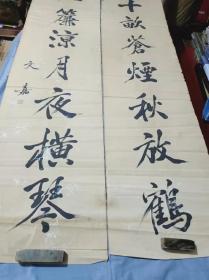 十畝蒼煙秋放鶴
簾涼月夜橫琴
文嘉